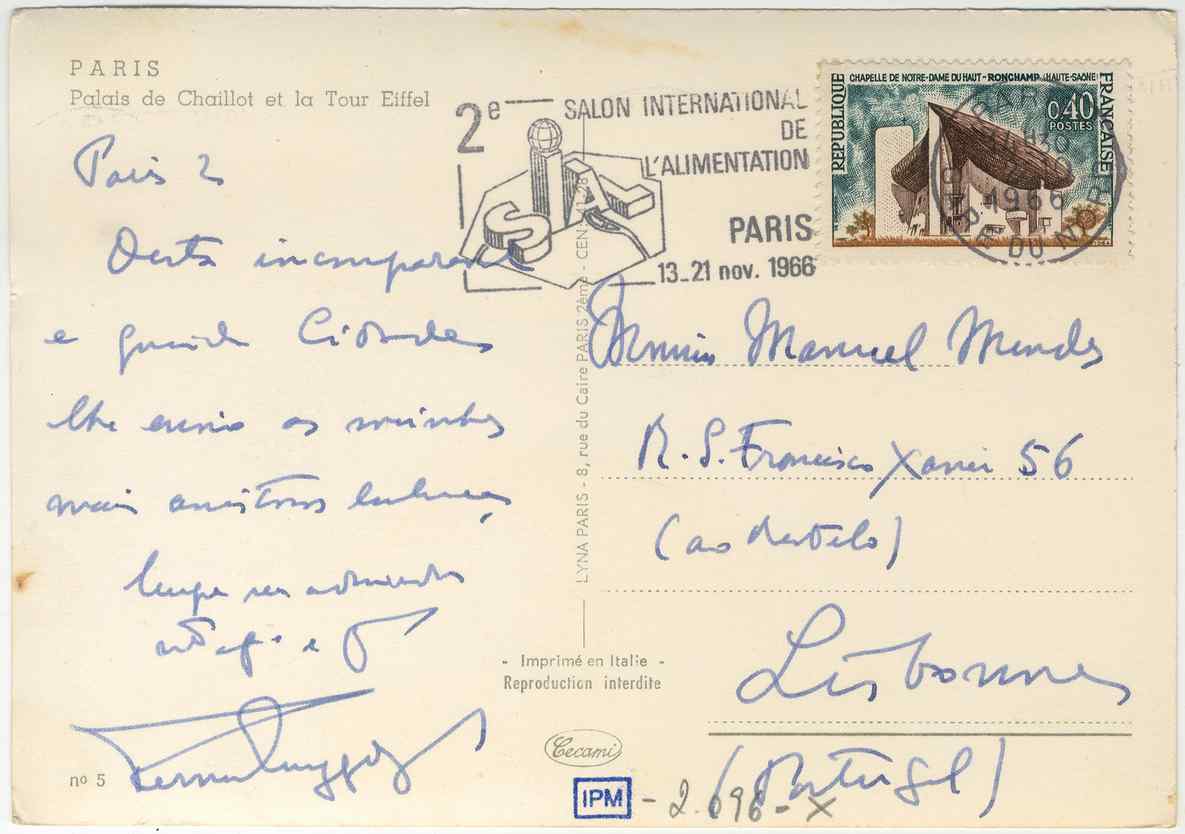 PARIS
Palais de Chaillot et la Tour Eiffel
Paris 2
Desta incomparavel
e grande Cidade
lhe envio as minhas
mais
sempre seu admirador
2e SALON INTERNATIONAL
DE
L'ALIMENTATION
SIAL
PARIS
13_21 nov. 1966
CHAPELLE DE NOTRE-DAME DU HAUT - RONCHAMP (HAUTE-SAÔNE)
REPUBLIQUE
FRANÇAISE
0,40
POSTES
PARIS
1966
DU NORD
Manuel Mendes
R. S. Francisco Xavier 56
(ao Restelo)
Lisbonne
(Portugal)
LYNA PARIS - 8, rue du Caire PARIS 2ème - CEN 41-28
- Imprimé en Italie -
Reproduction interdite
Cecami
nº 5
IPM - 2.696 - X